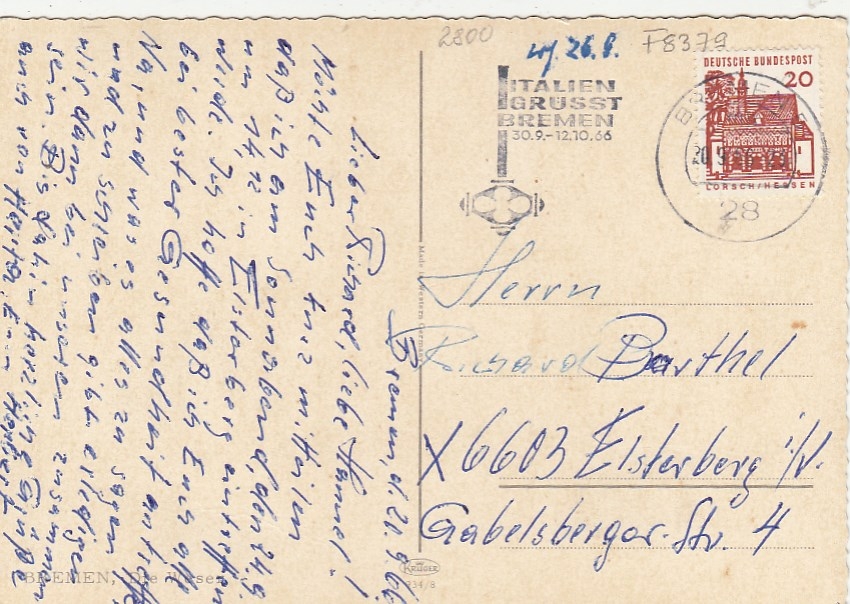 2800
26.8.
F8379
ITALIEN
GRÜSST
BREMEN
30.9.-12.10.66
DEUTSCHE BUNDESPOST
20
LORSCH/HESSEN
BREMEN
28
Herrn
Richard Barthel
X 6603 Elsterberg i/V.
Gabelsberger-Str. 4
Bremen, d. 20.9.66
Lieber Richard, liebe Hannel!
Möchte Euch kurz mitteilen
daß ich am Sonnabend, den 24.9.
um in Elsterberg eintreffen
werde. Ich hoffe daß ich Euch alle
bei bester Gesundheit antreffe
Na, und was es alles zu sagen
und zu schreiben gibt erledigen
wir dann bei unserem zusammen
sein. Bis dahin herzliche Grüße
auch von Euer
Made in Western Germany
KRÜGER
934/8
BREMEN, Die Weser